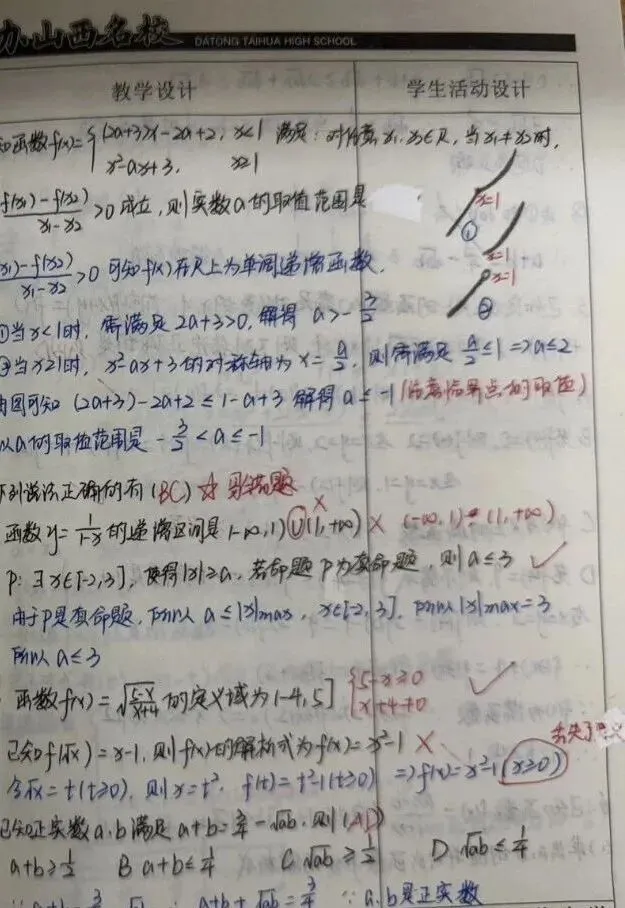 办山西名校 DATONG TAIHUA HIGH SCHOOL
教学设计 学生活动设计
知函数f(x)={(2a+3)x-2a+2, x<1 满足:对任意x₁,x₂∈R,当x₁≠x₂时,
x²-ax+3, x≥1
f(x₁)-f(x₂)/x₁-x₂ >0成立,则实数a的取值范围是
x=1
①
x=1
x=1
②
x₁)-f(x₂)/x₁-x₂ >0可知f(x)在R上为单调递增函数.
①当x<1时,需满足2a+3>0,解得a>-3/2
②当x≥1时,x²-ax+3的对称轴为x=a/2,则需满足a/2≤1=>a≤2
由图可知(2a+3)-2a+2≤1-a+3解得a≤-1(注意临界点的取值)
以a的取值范围是-3/2<a≤-1
下列说法正确的有(BC)☆易错题
函数y=1/1-x的递增区间是(-∞,1)∪(1,+∞) × (-∞,1)和(1,+∞)
P:∃x∈[-2,3],使得|x|≥a,若命题P为真命题,则a≤3 ✓
由于P是真命题,所以a≤|x|max,x∈[-2,3].所以|x|max=3
所以a≤3
函数f(x)=√(5-x/x+4)的定义域为(-4,5] {5-x≥0 ✓
x+4≠0
已知f(√x)=x-1,则f(x)的解析式为f(x)=x²-1 ×
令√x=t(t≥0),则x=t², f(t)=t²-1(t≥0) =>f(x)=x²-1(x≥0)
丢失了
已知正实数a.b满足a+b=3/4-√ab.则(AD)
a+b≥1/2 B a+b≤1/4 C √ab≥1/2 D √ab≤1/4
∴a+b+√ab=3/4 ∵a,b是正实数